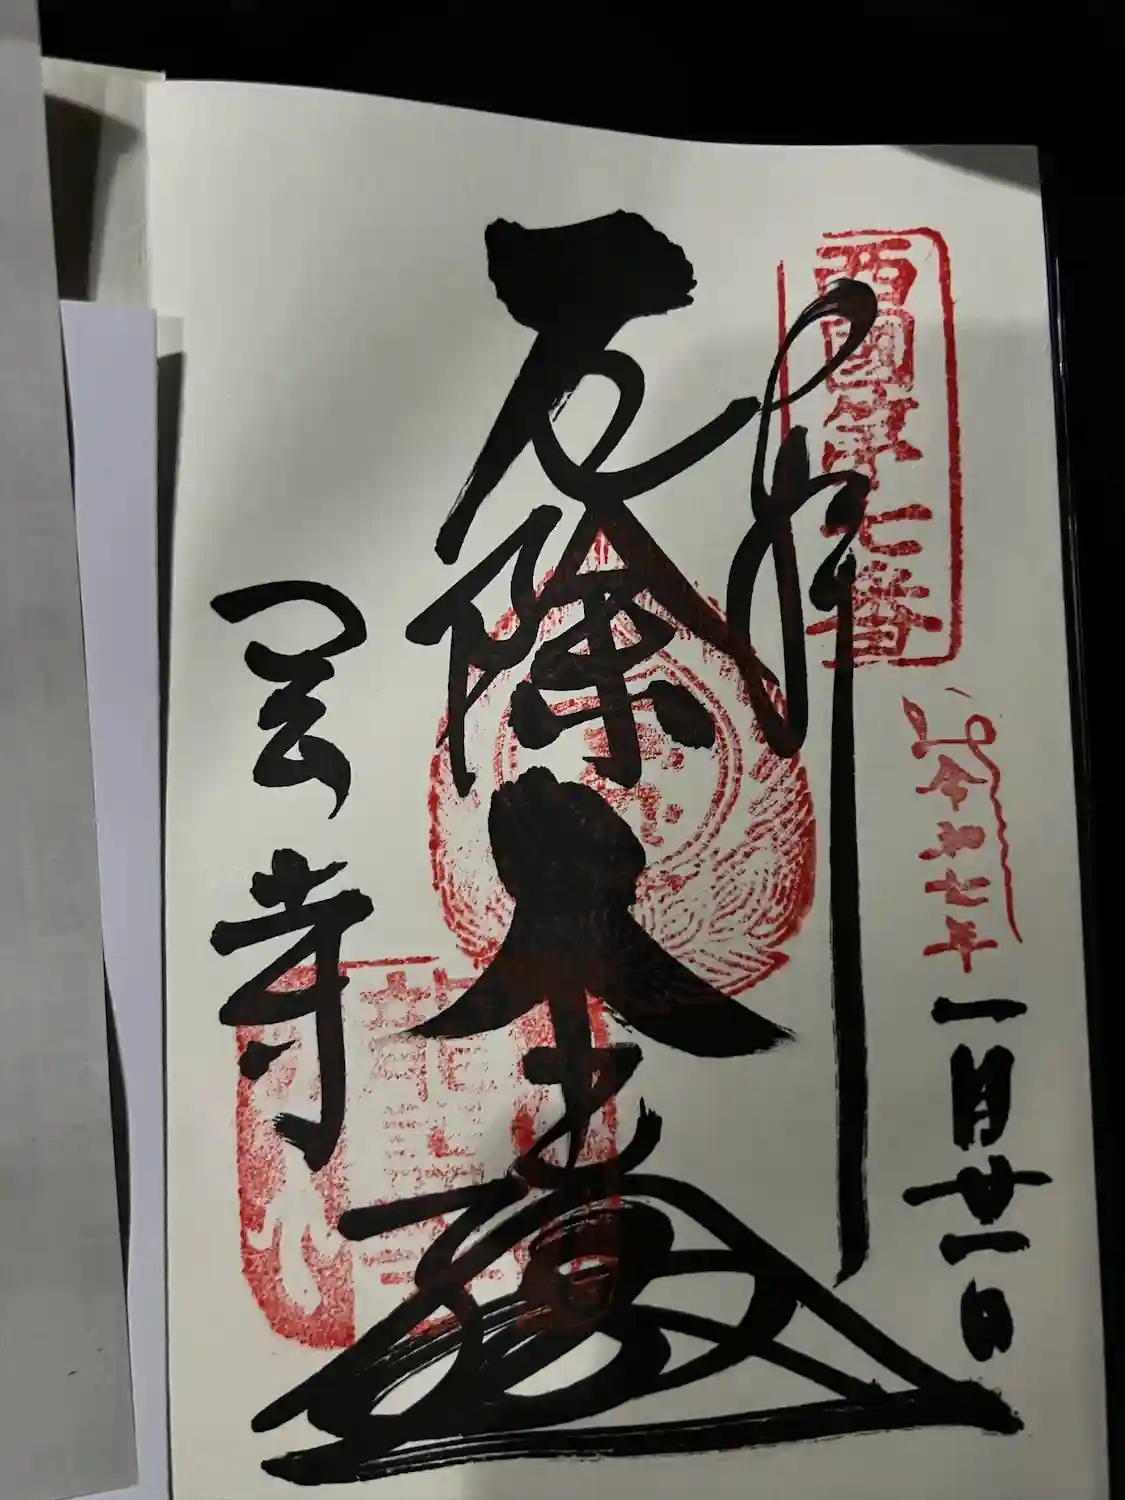 西國第七番
奉拝
令和七年一月廿一日
厄除大悲殿
岡寺